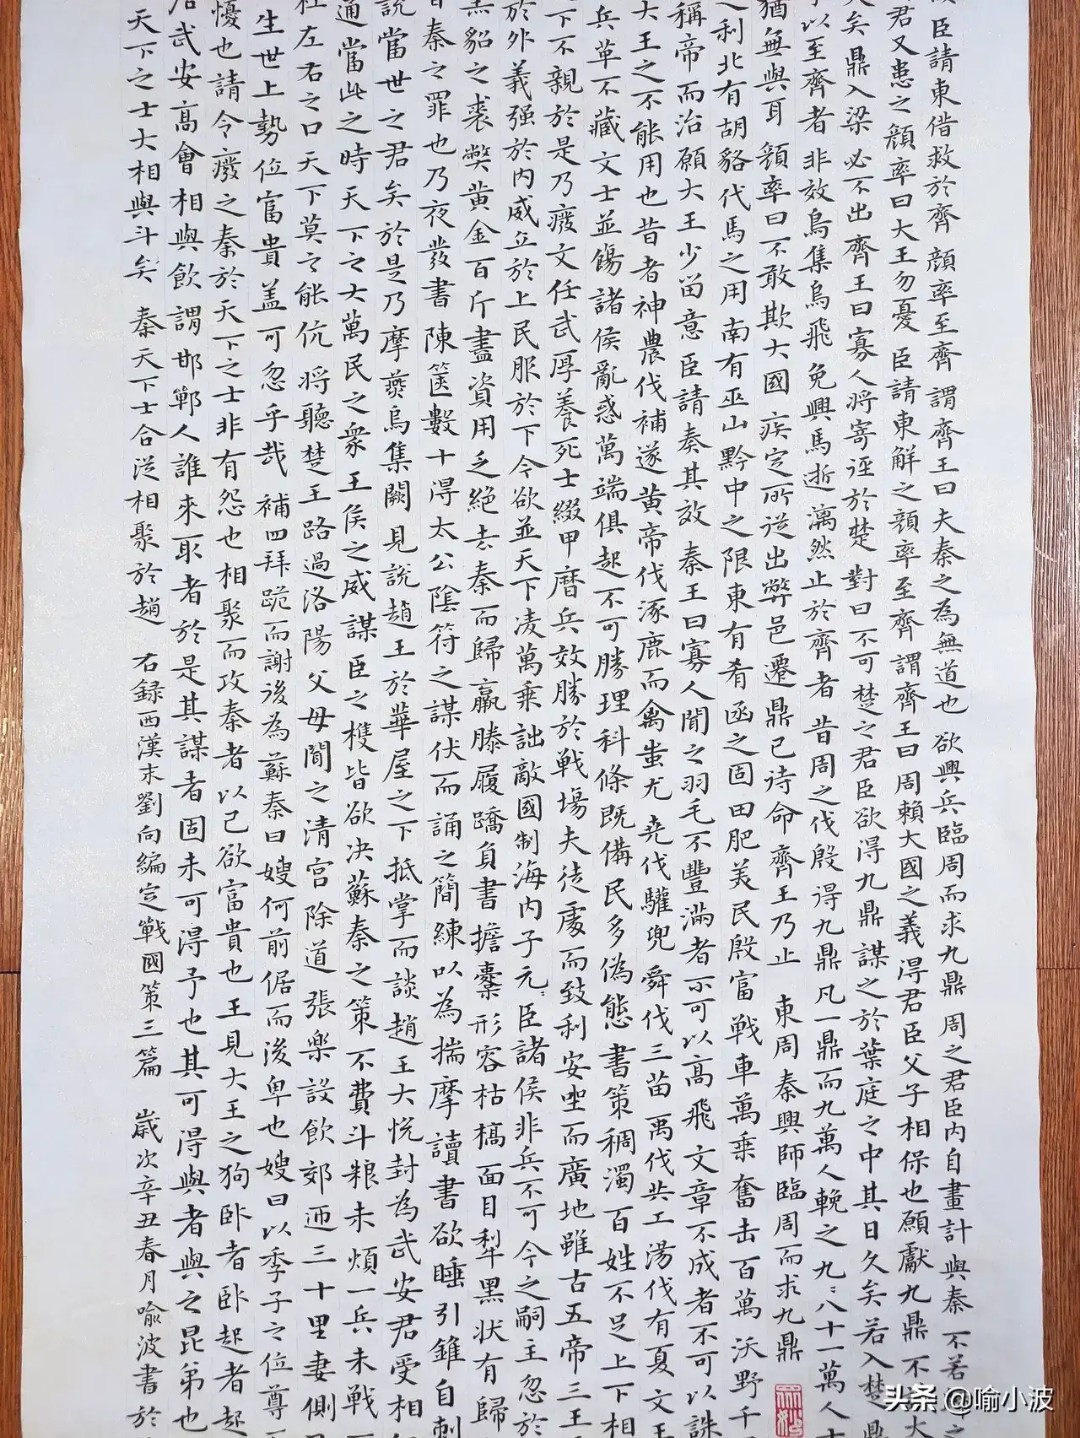 臣請東借救於齊 顔率至齊 謂齊王曰夫秦之為無道也 欲興兵臨周而求九鼎 周之君臣内自畫計 與秦 不若
君又患之顔率曰大王勿憂 臣請東解之顔率至齊謂齊王曰周賴大國之義得君臣父子相保也願獻九鼎 不
矣鼎入梁 必不出齊王曰寡人將寄逕於楚 對曰不可楚之君臣欲得九鼎謀之於葉庭之中其日久矣若入楚鼎
以至齊者非效鳥集烏飛兔興馬逝漓然止於齊者 昔周之伐殷得九鼎凡一鼎而九萬人輓之九〻八十一萬人士
猶無與耳 顔率曰不敢欺大國 疾定所從出弊邑遷鼎已待命 齊王乃止 東周秦興師臨周而求九鼎
利北有胡貉代馬之用南有巫山黔中之限東有肴函之固田肥美民殷富戰車萬乘奮击百萬 沃野千
稱帝而治願大王少畱意臣請奏其效 秦王曰寡人聞之羽毛不豐滿者不可以高飛文章不成者不可以誅
大王之不能用也昔者神農伐補遂黄帝伐涿鹿而禽蚩尤堯伐驩兜舜伐三苗禹伐共工湯伐有夏文王
兵革不藏文士並飭諸侯亂惑萬端俱起不可勝理科條既備民多偽態書策稠濁百姓不足上下相
下不親於是乃廢文任武厚養死士綴甲厝兵效勝於戰場夫徒處而致利安坐而廣地雖古五帝三王
於外義强於内威立於上民服於下今欲並天下凌萬乘詘敵國制海内子元〻臣諸侯非兵不可今之嗣王忽於
黑貂之裘獘黄金百斤盡資用乏絶去秦而歸羸縢履蹻負書擔橐形容枯槁面目犂黑状有歸
皆秦之罪也乃夜發書陳篋數十得太公陰符之謀伏而誦之簡練以為揣摩讀書欲睡引錐自刺
說當世之君矣於是乃摩燕烏集闕見說趙王於華屋之下抵掌而談趙王大悦封為武安君受相
通當此之時天下之大萬民之衆王侯之威謀臣之權皆欲决蘇秦之策不費斗粮未煩一兵未戰一
左右之口天下莫之能伉將聽楚王路過洛陽父母聞之清宫除道張樂設飲郊迊三十里妻側
生世上勢位富貴盖可忽乎哉 補四拜跪而謝後為蘇秦曰嫂何前倨而後卑也嫂曰以季子之位尊
憂也請令廢之秦於天下之士非有怨也相聚而攻秦者以己欲富貴也王見大王之狗卧者卧起者起
武安高會相與飲謂邯鄲人誰來取者於是其謀者固未可得予也其可得與者與之昆弟也
天下之士大相與斗矣 秦天下士合從相聚於趙 右録西漢末劉向編定戰國策三篇 歲次辛丑春月喻波書於
头条 @喻小波